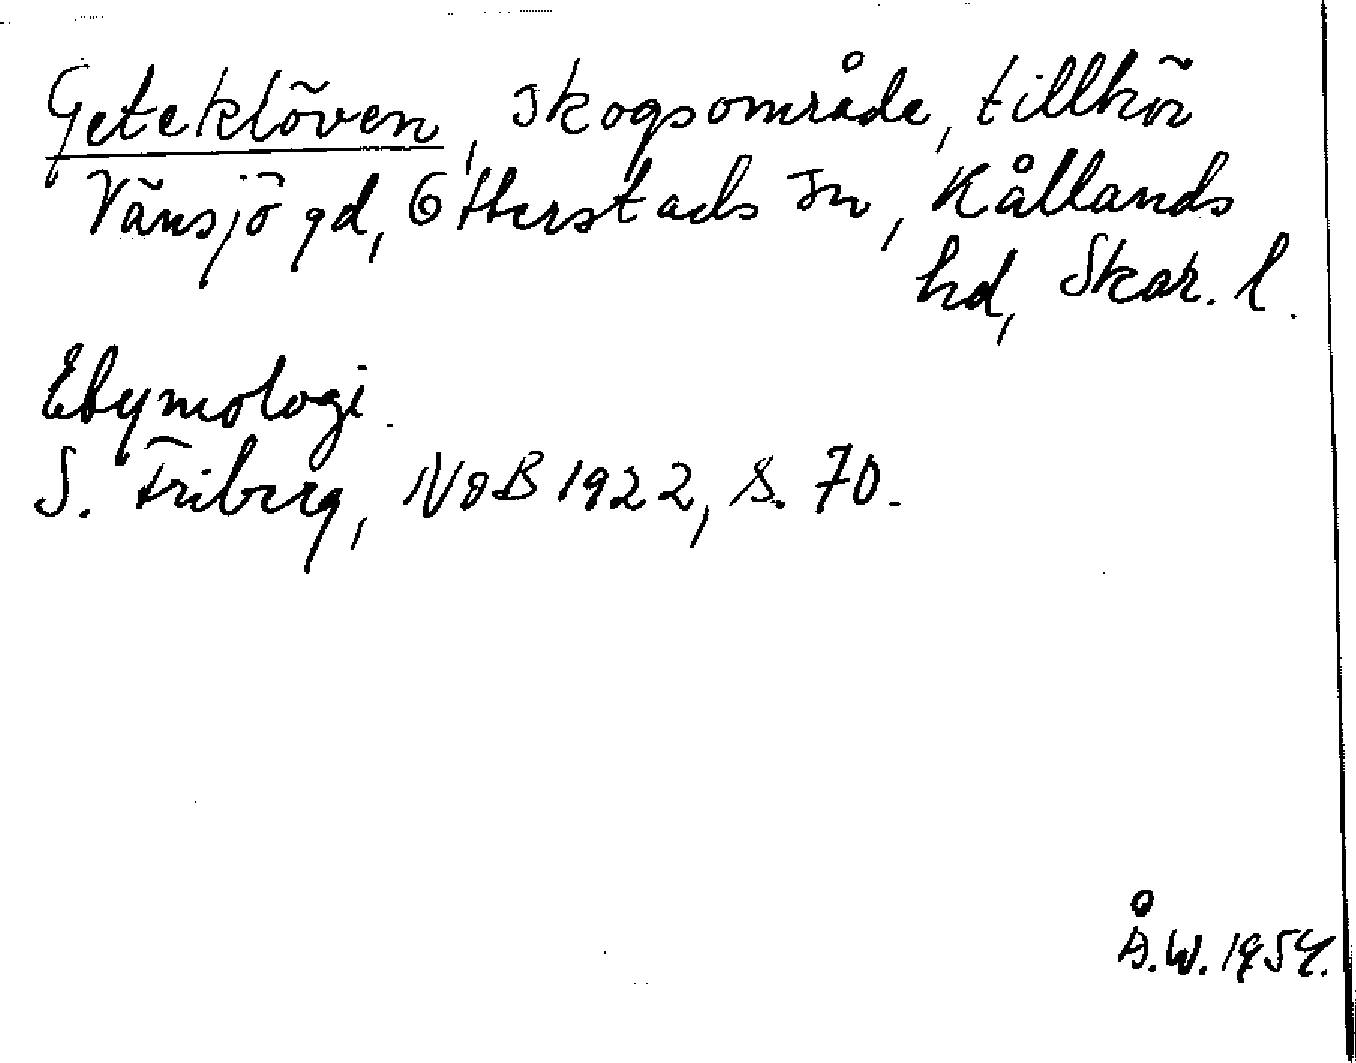 Geteklöven, skogsområde, tillhör
Vänsjö gd, Otterstads sn, Kållands
hd, Skar. l.
Etymologi.
S. Friberg, NoB 1922, s. 70.
Å.W. 1954.